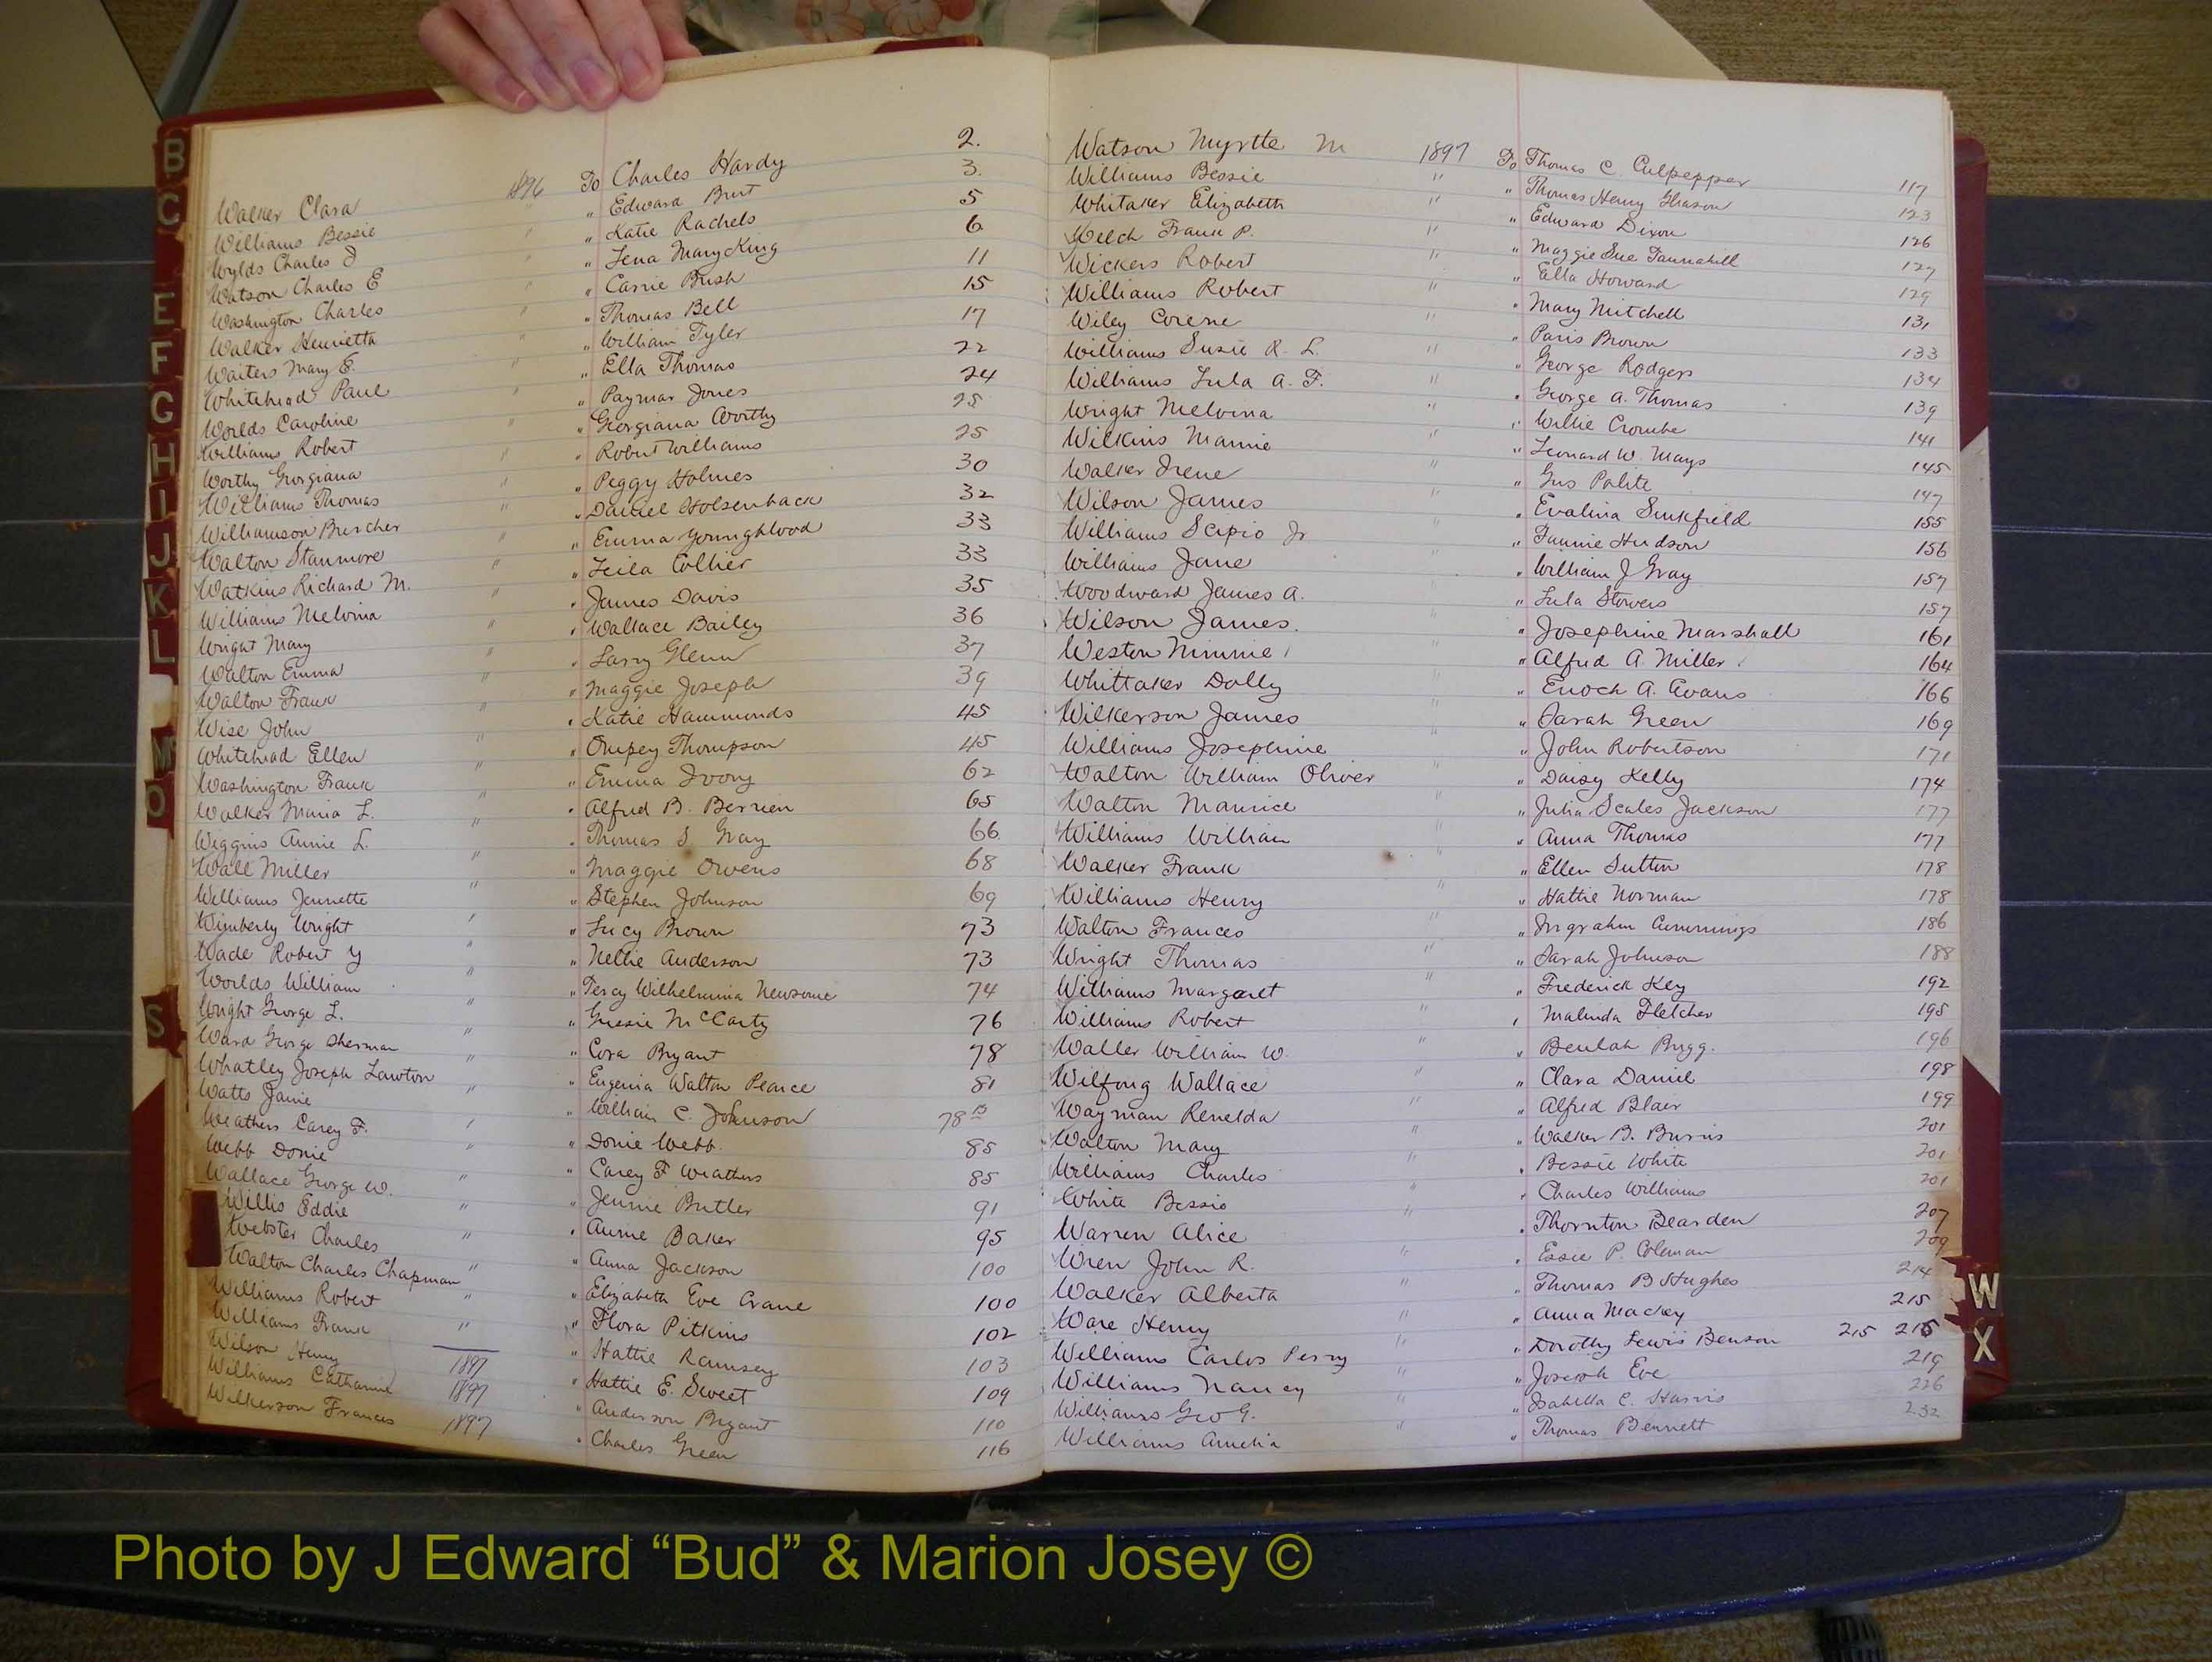 Walker Clara 1896 To Charles Hardy 2.
Williams Bessie " " Edward Burt 3.
Wylds Charles J " " Katie Rachels 5
Watson Charles E " " Lena Mary King 6
Washington Charles " " Carrie Bush 11
Walker Henrietta " " Thomas Bell 15
Waiters Mary E. " " William Tyler 17
Whitehead Paul " " Ella Thomas 22
Worlds Caroline " " Paymar Jones 24
Williams Robert " " Georgiana Worthy 25
Worthy Georgiana " " Robert Williams 25
Williams Thomas " " Peggy Holmes 30
Williamson Burcher " " Daniel Holsenback 32
Walton Stanmore " " Emma Youngblood 33
Watkins Richard M. " " Leila Collier 33
Williams Melvina " " James Davis 35
Wright Mary " " Wallace Bailey 36
Walton Emma " " Larry Glenn 37
Walton Frank " " Maggie Joseph 39
Wise John " " Katie Hammonds 45
Whitehead Ellen " " Thompson 45
Washington Frank " " Emma Ivory 62
Walker Maria L. " " Alfred B. Berrien 65
Wiggins Annie L. " " Thomas S Gray 66
Wall Miller " " Maggie Owens 68
Williams Jennette " " Stephen Johnson 69
Wimberly Wright " " Lucy Brown 73
Wade Robert Y " " Nellie Anderson 73
Worlds William " " Percy Wilhelmina Newsome 74
Wright George L. " " Gussie McCarty 76
Ward George Sherman " " Cora Bryant 78
Whatley Joseph Lawton " " Eugenia Walton Pearce 81
Watts Janie " " William C. Johnson 78 ½
Weathers Carey F. " " Donie Webb. 85
Webb Donie " " Carey F Weathers 85
Wallace George W. " " Jennie Butler 91
Willis Eddie " " Annie Baker 95
Webster Charles " " Anna Jackson 100
Walton Charles Chapman " " Elizabeth Eve Crane 100
Williams Robert " " Flora Pitkins 102
Williams Frank " " Hattie Ramsey 103
Wilson Henry 1897 " Hattie E. Sweet 109
Williams Catharine 1897 " Anderson Bryant 110
Wilkerson Frances 1897 " Charles Green 116
Watson Myrtte M 1897 To Thomas C. Culpepper 117
Williams Bessie " " Thomas Henry Gleason 123
Whitaker Elizabeth " " Edward Dixon 126
Welch Frank P. " " Maggie Sue Tannahill 127
Wickers Robert " " Ella Howard 129
Williams Robert " " Mary Mitchell 131
Wiley Corene " " Paris Brown 133
Williams Susie R. L. " " George Rodgers 134
Williams Lula A. F. " " George A. Thomas 139
Wright Melvina " " Willie 141
Wilkins Mamie " " Leonard W. Mays 145
Walker Irene " " Gus Polite 147
Wilson James " " Evalina Sinkfield 155
Williams Scipio Jr " " Fannie Hudson 156
Williams Jane " " William J Gray 157
Woodward James A. " " Lula Stowers 157
Wilson James. " " Josephine Marshall 161
Weston Minnie " " Alfred A. Miller 164
Whittaker Dolly " " Enoch A. Evans 166
Wilkerson James " " Sarah Green 169
Williams Josephine " " John Robertson 171
Walton William Oliver " " Daisy Kelly 174
Walton Maurice " " Julia Scales Jackson 177
Williams William " " Anna Thomas 177
Walker Frank " " Ellen Sutton 178
Williams Henry " " Hattie Norman 178
Walton Frances " " Ingrahm Cummings 186
Wright Thomas " " Sarah Johnson 188
Williams Margaret " " Frederick Key 192
Williams Robert " " Malinda Fletcher 195
Waller William W. " " Beulah Bugg. 196
Wilfong Wallace " " Clara Daniel 198
Wayman Renelda " " Alfred Blair 199
Walton Mary " " Walker B. Burris 201
Williams Charles " " Bessie White 201
White Bessie " " Charles Williams 201
Warren Alice " " Thornton Bearden 207
Wren John R. " " Essie P. Coleman 209
Walker Alberta " " Thomas B Hughes 214
Ware Henry " " Anna Mackey 215
Williams Carlos Perry " " Dorothy Lewis Benson 215 215
Williams Nancy " " Joseph Eve 219
Williams Geo G. " " Isabella C. Harris 226
Williams Amelia " " Thomas Bennett 232
B
C
E
F
G
H
I
J
K
L
M
O
S
W
X
Photo by J Edward “Bud” & Marion Josey ©